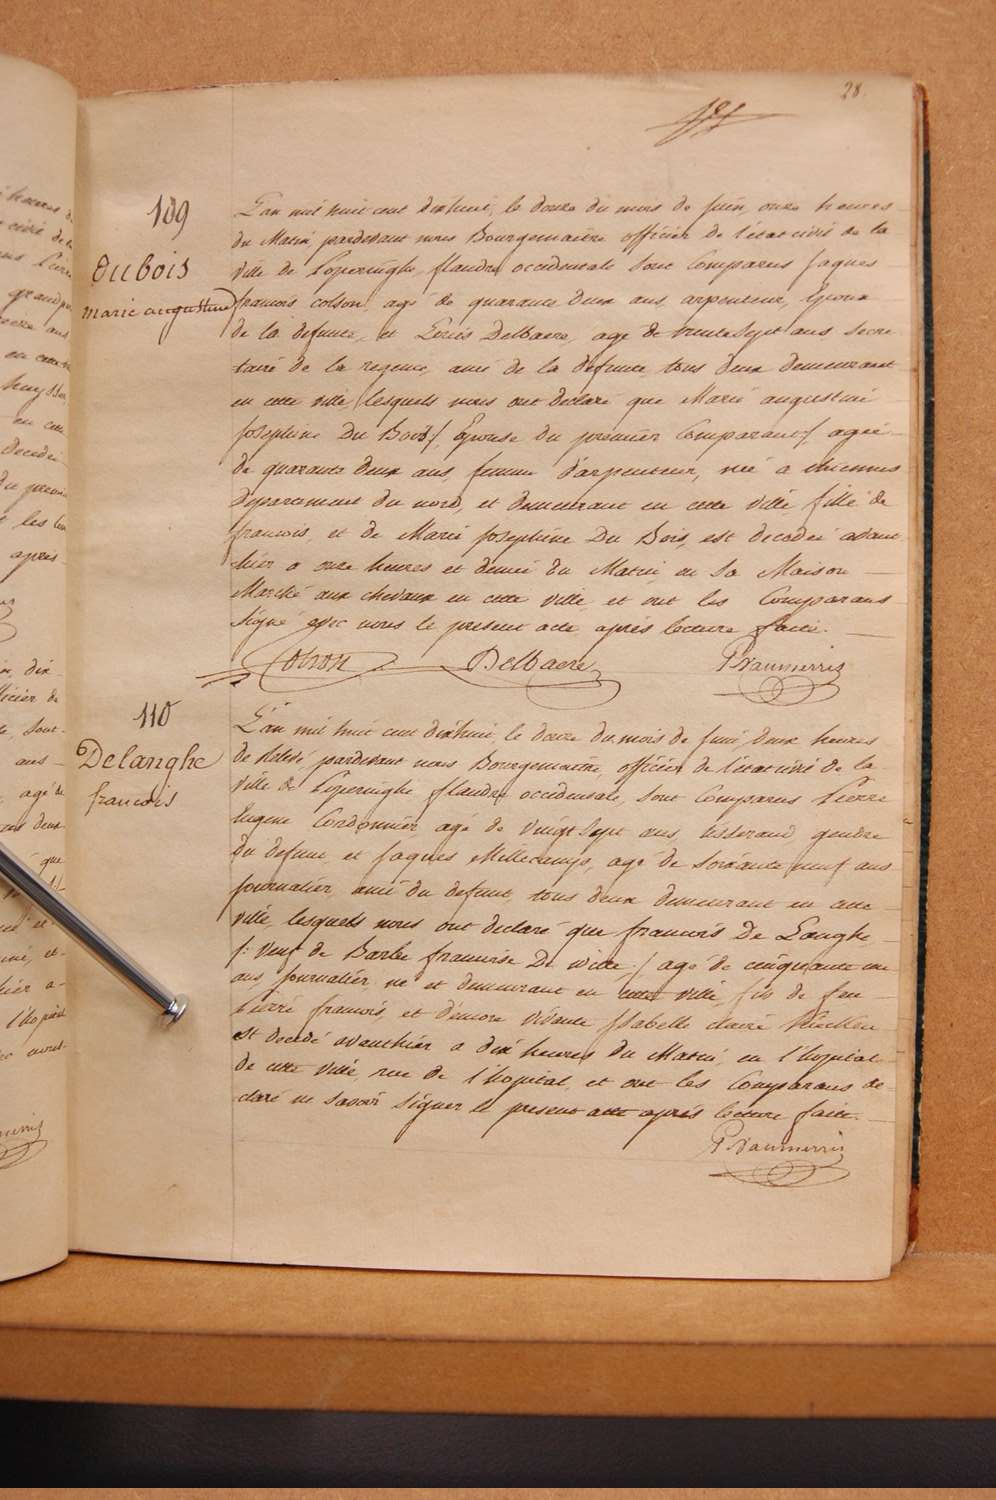 28
109
Dubois
marie augustine
L'an mil huit cent dixhuit, le douze du mois de Juin, onze heures
du Matin pardevant nous Bourgemaitre officier de l'état civil de la
ville de Poperinghe, flandre occidentale sont Comparus Jaques
francois colson, agé de quarante deux ans, arpenteur, Epoux
de la defunte, et Louis Delbaere, agé de trente sept ans secre
taire de la regence, ami de la defunte, tous deux demeurant
en cette ville, lesquels nous ont declaré que Marie augustine
Josephine Du Bois /, Epouse du premier Comparant /, agée
de quarante deux ans, femme d'arpenteur, née a
Departement du nord, et demeurant en cette ville fille de
francois, et de Marie Josephine Du Bois, est decedée avant
hier a onze heures et demie du Matin, en sa Maison
Marché aux chevaux en cette ville, et ont les Comparans
signé avec nous le present acte, aprés lecture faite.
Colson Delbaere
110
Delanghe
francois
L'an mil huit cent dixhuit, le douze du mois de Juin, deux heures
de Relevé, pardevant nous Bourgemaitre, officier de l'état civil de la
ville de Poperinghe flandre occidentale, sont Comparus Pierre
Eugene Cordonnier, agé de vingt sept ans, tisserand, gendre
du defunt, et Jaques Millecamps, agé de soixante neuf ans
journalier, ami du defunt, tous deux demeurant en cette
ville, lesquels nous ont declaré que francois De Langhe
/: Veuf de Barbe francoise De witte :/ agé de cinquante un
ans, journalier, né et demeurant en cette ville, fils de feu
Pierre francois, et d'encore vivante Isabelle claire
est decedé avanthier a dix heures du Matin, en l'hopital
de cette ville, rue de l'hopital, et ont les Comparans de
claré ne savoir signer le present acte aprés lecture faite.